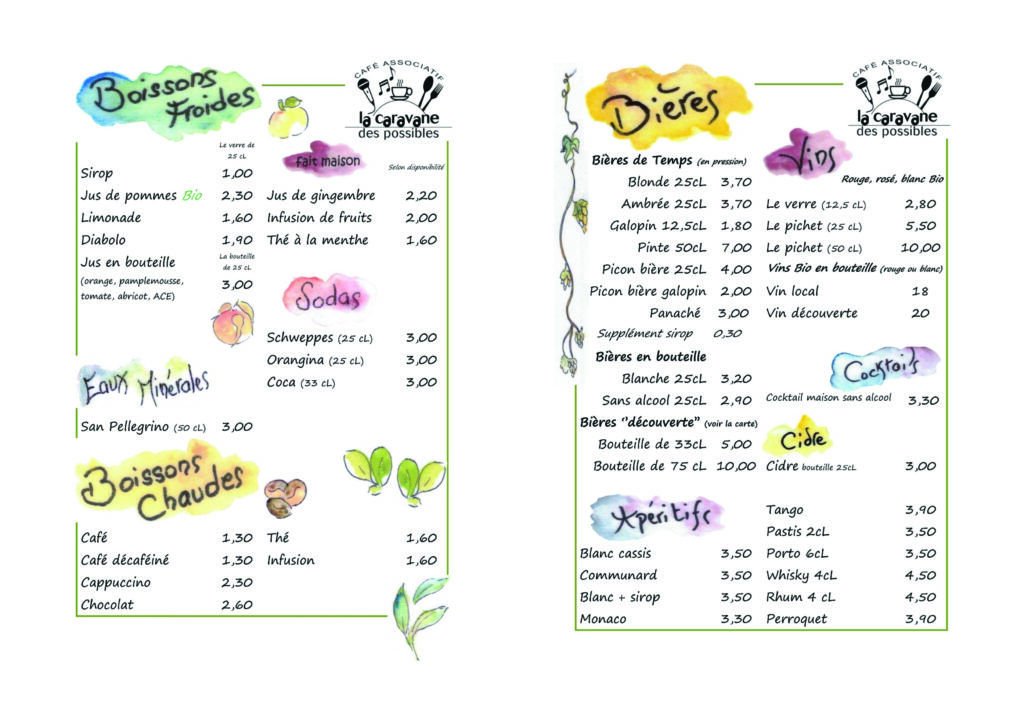 Boissons
Froides
CAFÉ ASSOCIATIF
la caravane
des possibles
Le verre de
25 cL
Sirop 1,00
Jus de pommes Bio 2,30
Limonade 1,60
Diabolo 1,90
Jus en bouteille
La bouteille
de 25 cL
(orange, pamplemousse,
tomate, abricot, ACE) 3,00
fait maison
Selon disponibilité
Jus de gingembre 2,20
Infusion de fruits 2,00
Thé à la menthe 1,60
Sodas
Schweppes (25 cL) 3,00
Orangina (25 cL) 3,00
Coca (33 cL) 3,00
Eaux Minérales
San Pellegrino (50 cL) 3,00
Boissons
Chaudes
Café 1,30
Café décaféiné 1,30
Cappuccino 2,30
Chocolat 2,60
Thé 1,60
Infusion 1,60
Bières
CAFÉ ASSOCIATIF
la caravane
des possibles
Bières de Temps (en pression)
Blonde 25cL 3,70
Ambrée 25cL 3,70
Galopin 12,5cL 1,80
Pinte 50cL 7,00
Picon bière 25cL 4,00
Picon bière galopin 2,00
Panaché 3,00
Supplément sirop 0,30
Bières en bouteille
Blanche 25cL 3,20
Sans alcool 25cL 2,90
Bières ‘’découverte’’ (voir la carte)
Bouteille de 33cL 5,00
Bouteille de 75 cL 10,00
Vins
Rouge, rosé, blanc Bio
Le verre (12,5 cL) 2,80
Le pichet (25 cL) 5,50
Le pichet (50 cL) 10,00
Vins Bio en bouteille (rouge ou blanc)
Vin local 18
Vin découverte 20
Cocktails
Cocktail maison sans alcool 3,30
Cidre
Cidre bouteille 25cL 3,00
Apéritifs
Blanc cassis 3,50
Communard 3,50
Blanc + sirop 3,50
Monaco 3,30
Tango 3,90
Pastis 2cL 3,50
Porto 6cL 3,50
Whisky 4cL 4,50
Rhum 4 cL 4,50
Perroquet 3,90